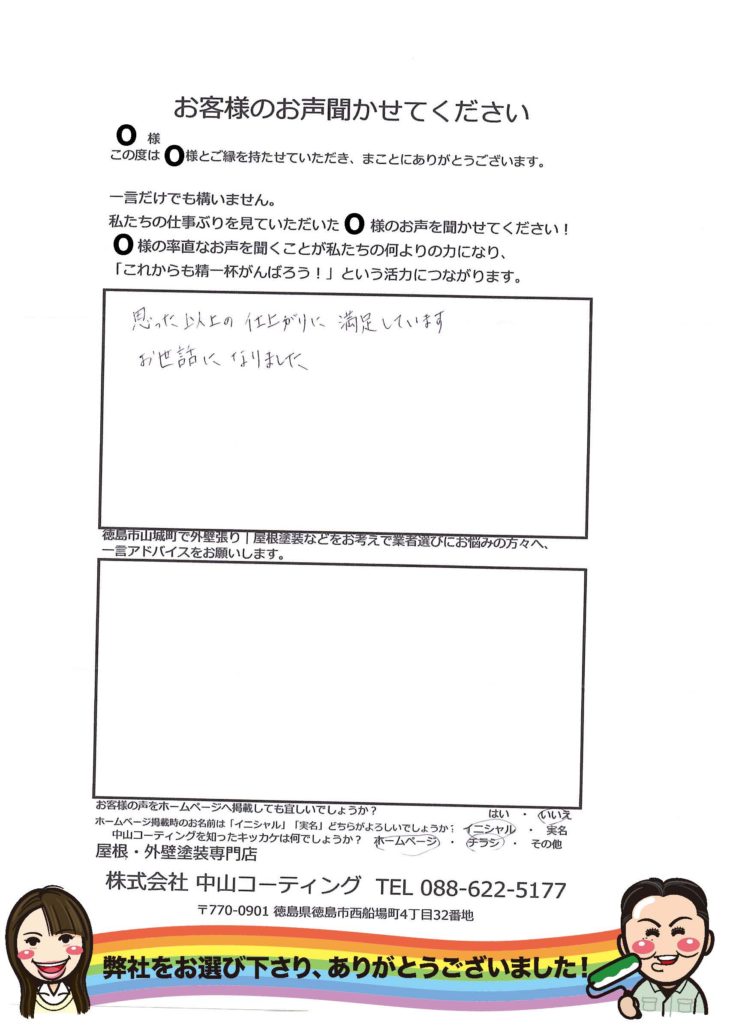 お客様のお声聞かせてください
O 様
この度は O様とご縁を持たせていただき、まことにありがとうございます。
一言だけでも構いません。
私たちの仕事ぶりを見ていただいた O 様のお声を聞かせてください！
O様の率直なお声を聞くことが私たちの何よりの力になり、
「これからも精一杯がんばろう！」という活力につながります。
思った以上の仕上がりに満足しています
お世話になりました
徳島市山城町で外壁張り｜屋根塗装などをお考えで業者選びにお悩みの方々へ、
一言アドバイスをお願いします。
お客様の声をホームページへ掲載しても宜しいでしょうか？ はい ・ いいえ
ホームページ掲載時のお名前は「イニシャル」「実名」どちらがよろしいでしょうか？ イニシャル ・ 実名
中山コーティングを知ったキッカケは何でしょうか？ ホームページ ・ チラシ ・ その他
屋根・外壁塗装専門店
株式会社 中山コーティング TEL 088-622-5177
〒770-0901 徳島県徳島市西船場町4丁目32番地
弊社をお選び下さり、ありがとうございました！